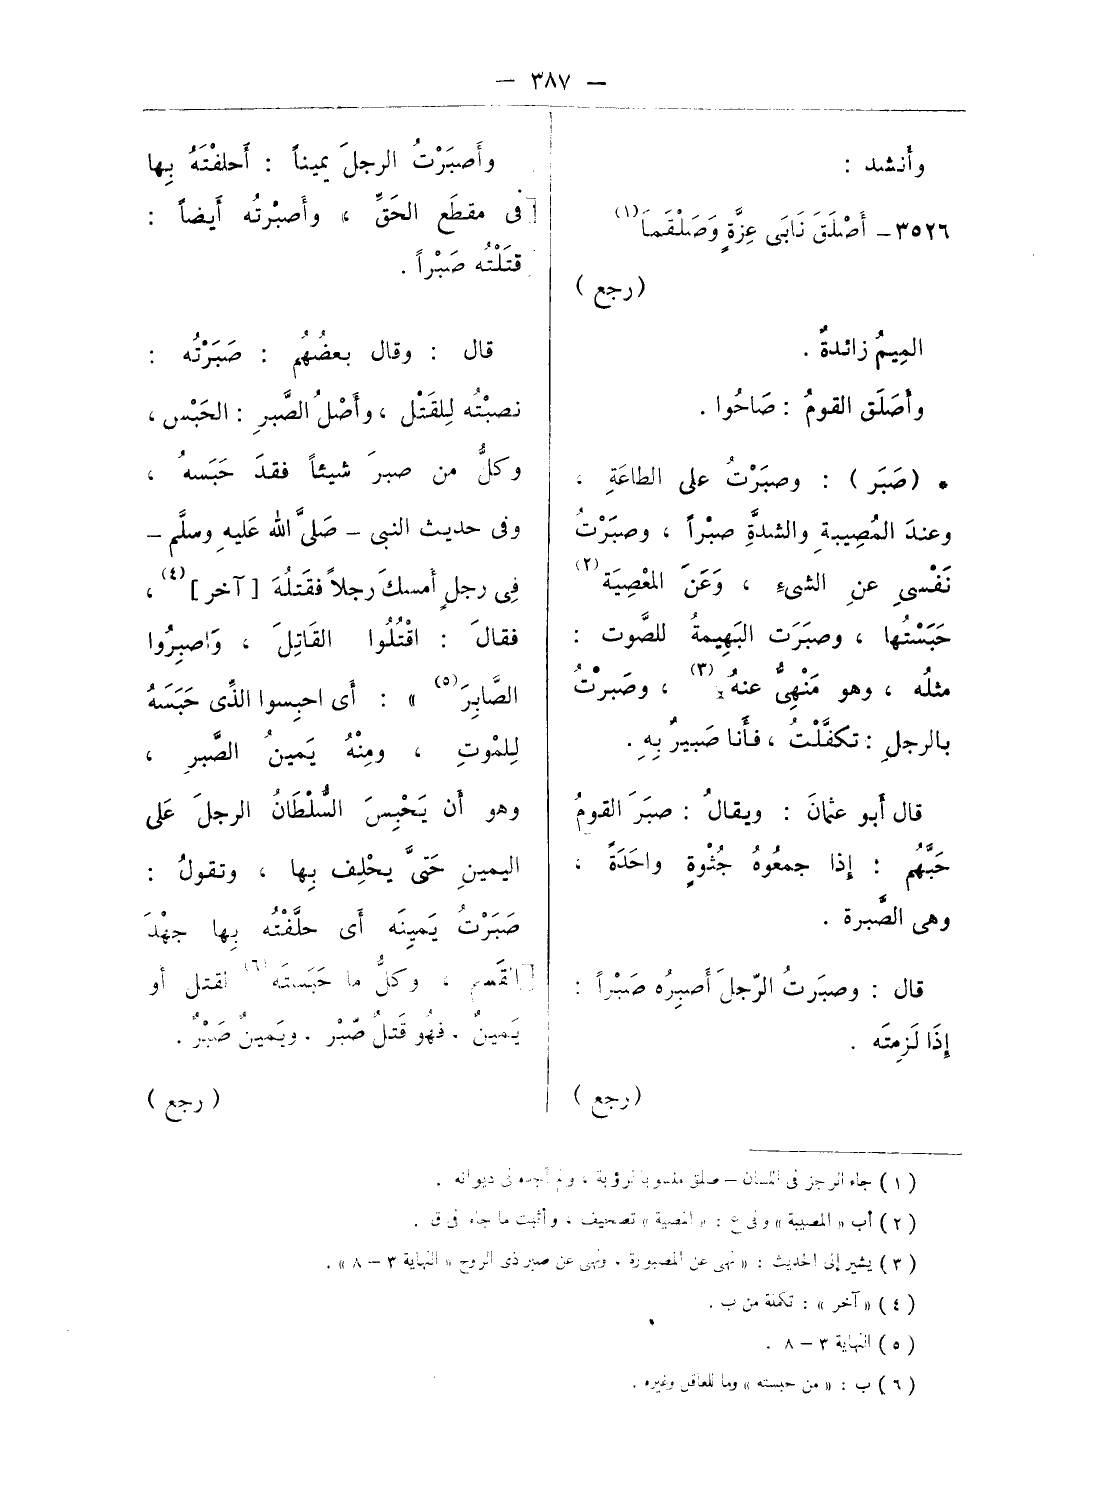 — ٣٨٧ —
وأَنشد :
٣٥٢٦ – أَصْلَقَ نَابَى عِزَّةٍ وَصَلْقَمَا(١)
( رجع )
الميمُ زائدةٌ .
وأَصلَق القومُ : صَاحُوا .
* ( صَبَر ) : وصبَرْتُ على الطاعَةِ ،
وعندَ المُصِيبةِ والشدَّةِ صبْراً ، وصبَرْتُ
نَفْسىِ عنِ الشىءِ ، وَعَنَ المَعْصِيَة(٢)
حَبَسْتُها ، وصبَرَت البَهِيمةُ للصَّوت :
مثلُه ، وهو مَنْهِىٌّ عنهُ(٣) ، وصَبرْتُ
بالرجلِ : تكفَّلْتُ ، فأَنا صَبيرٌ بِهِ .
قال أَبو عثمانَ : ويقالُ : صبَرَ القومُ
حَبَّهُم : إذا جمعُوهُ جُثْوةٍ واحَدَةً ،
وهى الصَّبرة .
قال : وصبَرتُ الرّجلَ أَصبِرُه صَبْراً :
إِذَا لَزِمتَه .
( رجع )
وأَصبَرْتُ الرجلَ يميناً : أَحلفْتَهُ بِها
فى مقطَع الحَقِّ ، وأَصبْرتُه أَيضاً :
قتَلْتُه صَبْراً .
قال : وقال بعضُهُم : صَبَرْتُه :
نصبْتُه لِلقَتْل ، وأَصْلُ الصَّبرِ : الحَبْس ،
وكلُّ من صبرَ شيئاً فقدَ حَبَسهُ ،
وفى حديث النبى – صَلىَّ الله عَليهِ وسلَّم –
فِى رجلٍ أَمسكَ رجلاً فقَتلُهَ [ آخر ](٤) ،
فقالَ : اقْتُلُوا القَاتِلَ ، وَاصبِرُوا
الصَّابِرَ(٥) » : أَى احبِسوا الذَّى حَبَسَهُ
لِلمْوتِ ، ومِنْهُ يَمينُ الصَّبرِ ،
وهو أَن يَحْبِسَ السُّلْطَانُ الرجلَ عَلى
اليمينِ حَتىَّ يحْلِف بِها ، وتقولُ :
صَبَرْتُ يَمينِهَ أَى حلَّفْتُه بِها جهْدَ
القَسمِ ، وكلُّ ما حَبَستَه(٦) لقتل أو
يَمينٌ . فهُو قَتلُ صّبْر . ويَمينٌ صَبْرٌ .
( رجع )
( ١ ) جاء الرجز فى اللسان – صلق منسوبا لرؤبة ، ولم أجده فى ديوانه .
( ٢ ) أب « المصيبة » وفى ع : « المصية » تصحيف ، وأثبت ما جاء فى ق .
( ٣ ) يشير إلى الحديث : « نهى عن المصبورة ، ونهى عن صبر ذى الروح « النهاية ٣ – ٨ » .
( ٤ ) « آخر » : تكملة من ب .
( ٥ ) النهاية ٣ – ٨ .
( ٦ ) ب : « من حبسته » وما للعاقل وغيره .